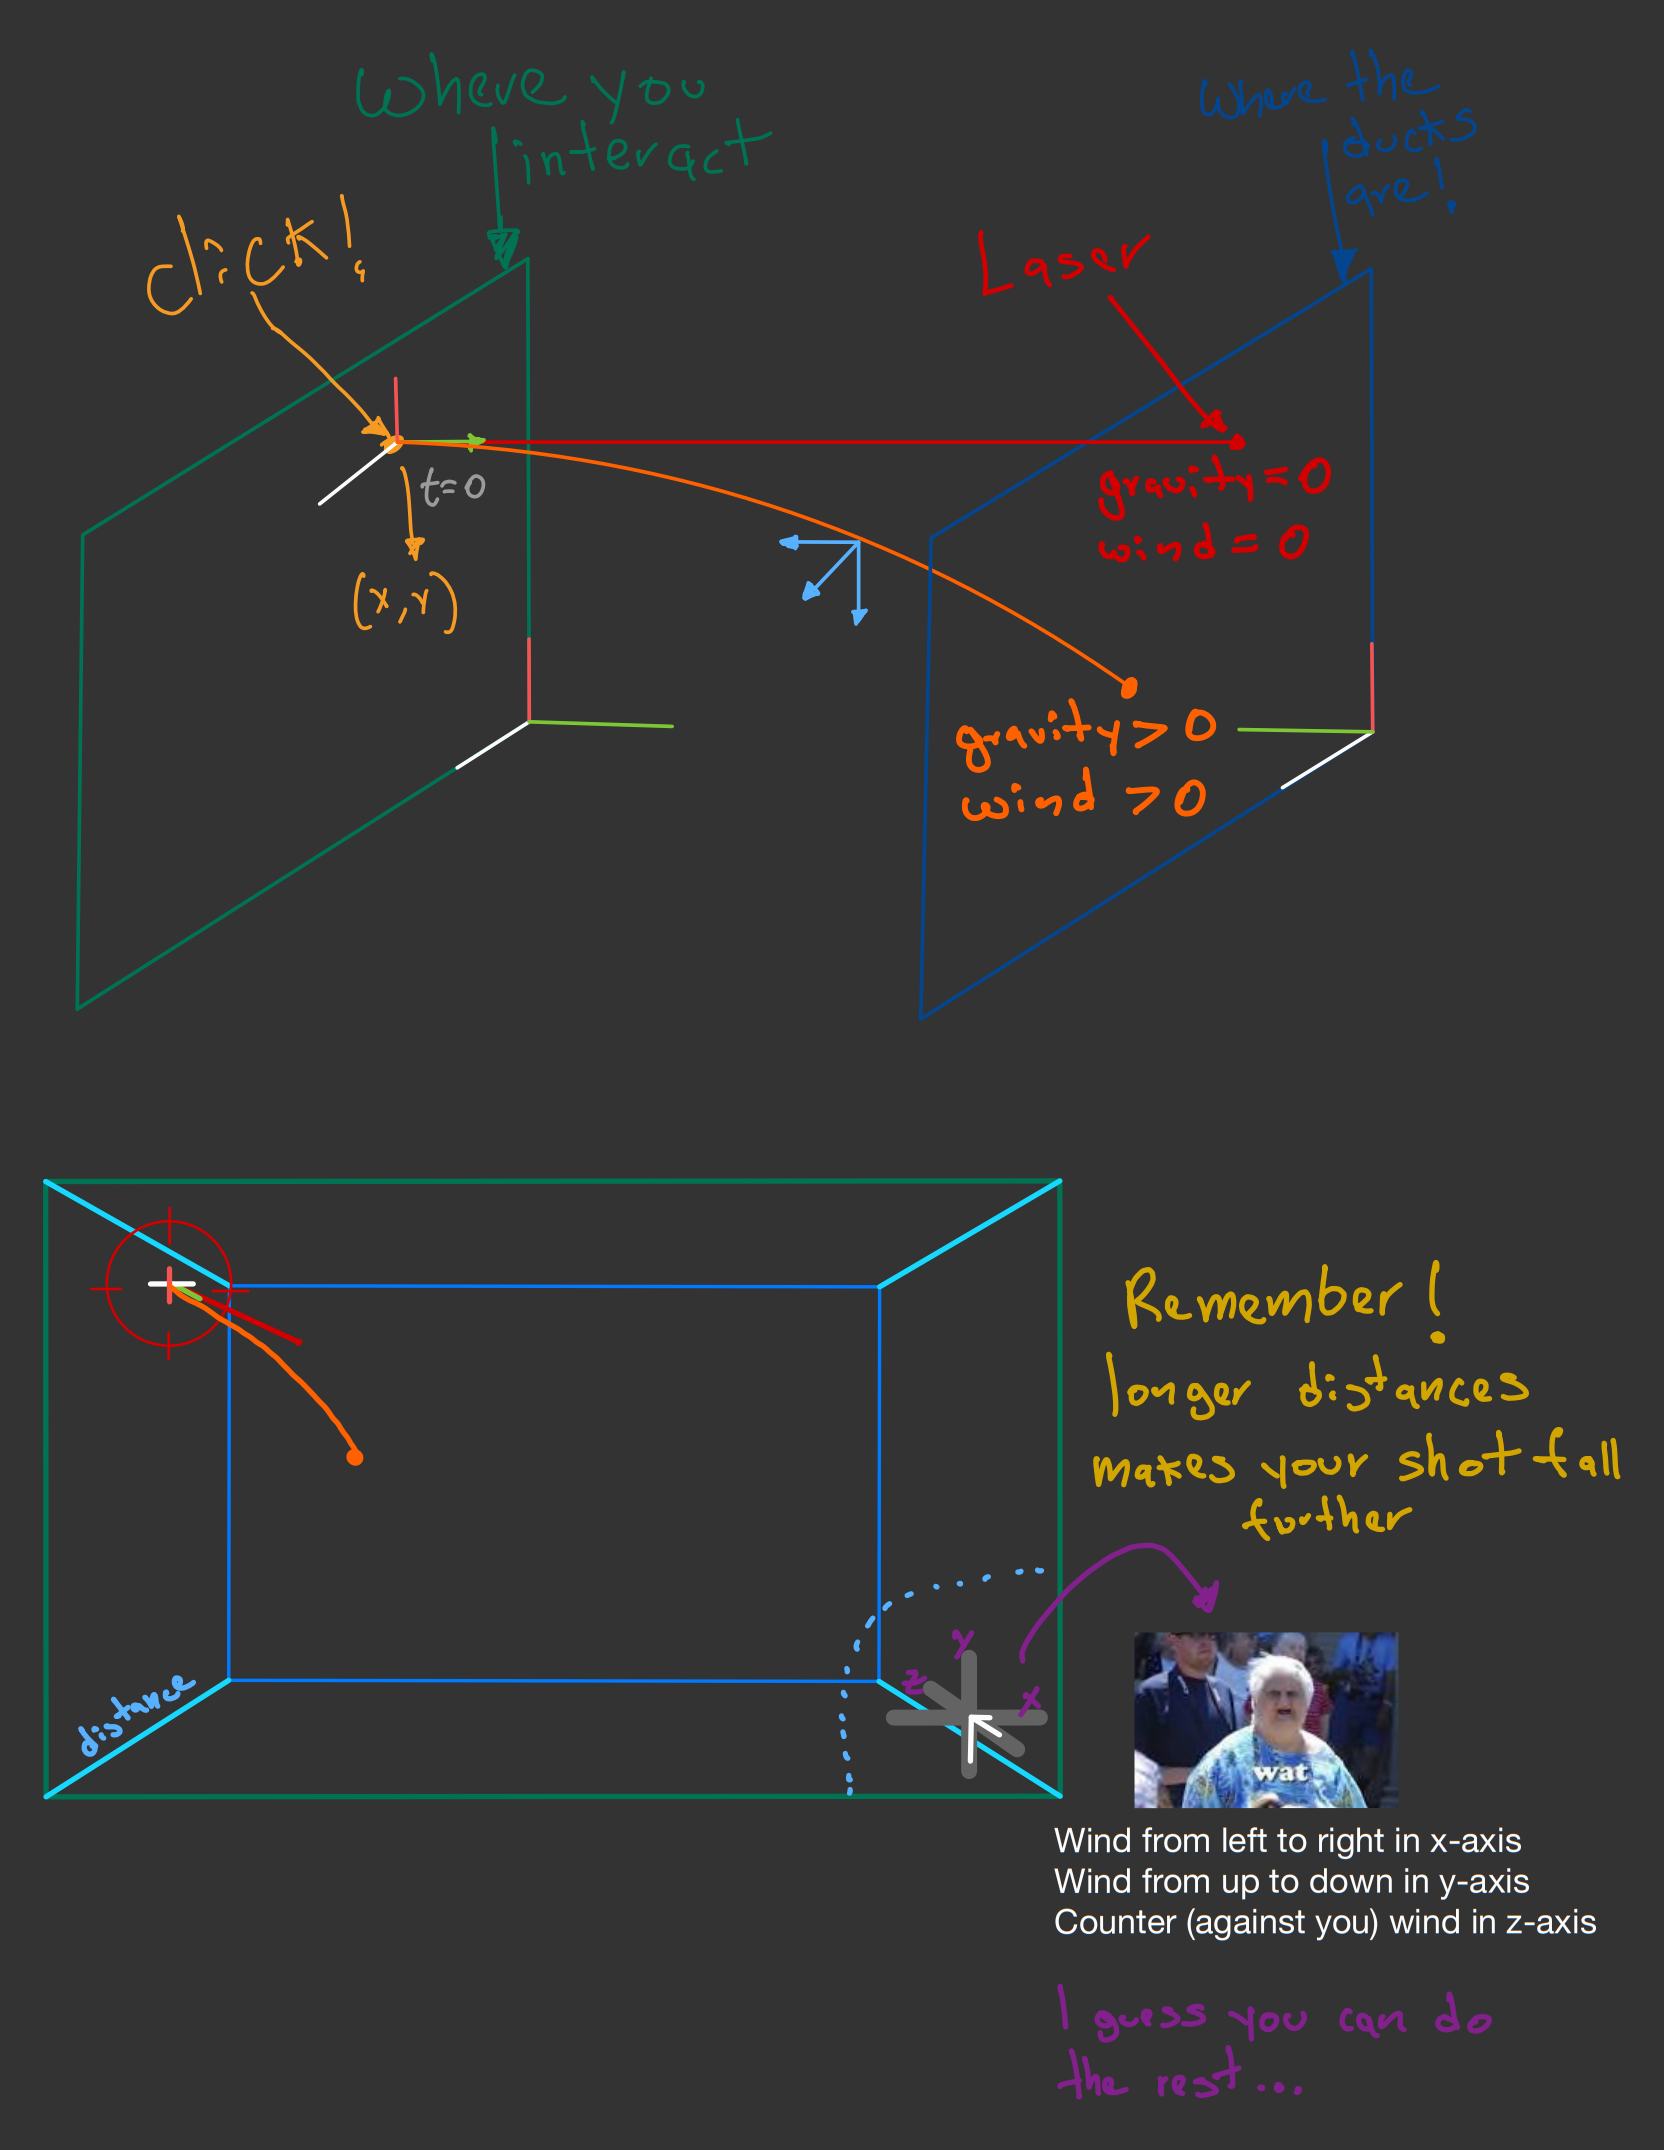 Where you
interact
Where the
ducks
are!
Click!
Laser
t=0
(x,y)
gravity=0
wind=0
gravity>0
wind >0
Remember!
longer distances
makes your shot fall
further
distance
y
z
x
wat
Wind from left to right in x-axis
Wind from up to down in y-axis
Counter (against you) wind in z-axis
I guess you can do
the rest...